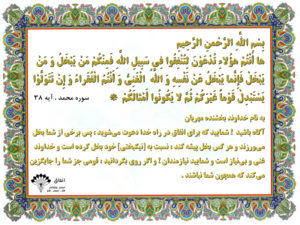 بِسْمِ اللَّهِ الرَّحْمنِ الرَّحِيمِ
ها أَنْتُمْ هؤُلاءِ تُدْعَوْنَ لِتُنْفِقُوا فِي سَبِيلِ اللَّهِ فَمِنْكُمْ مَنْ يَبْخَلُ وَ مَنْ
يَبْخَلْ فَإِنَّما يَبْخَلُ عَنْ نَفْسِهِ وَ اللَّهُ الْغَنِيُّ وَ أَنْتُمُ الْفُقَراءُ وَ إِنْ تَتَوَلَّوْا
يَسْتَبْدِلْ قَوْماً غَيْرَكُمْ ثُمَّ لا يَكُونُوا أَمْثالَكُمْ سوره محمد . آیه ۳۸
به نام خداوند بخشنده مهربان
آگاه باشید ! شمایید که برای انفاق در راه خدا دعوت می‌شوید ، پس برخی از شما بخل
می‌ورزند و هر کس بخل پیشه کند ، نسبت به [نیک‌بختی] خود بخل کرده است و خداوند
غنی و بی‌نیاز است و شمایید نیازمندان ! و اگر روی بگردانید ، قومی جز شما را جایگزین
می‌کند که همچون شما نباشند .
انفاق